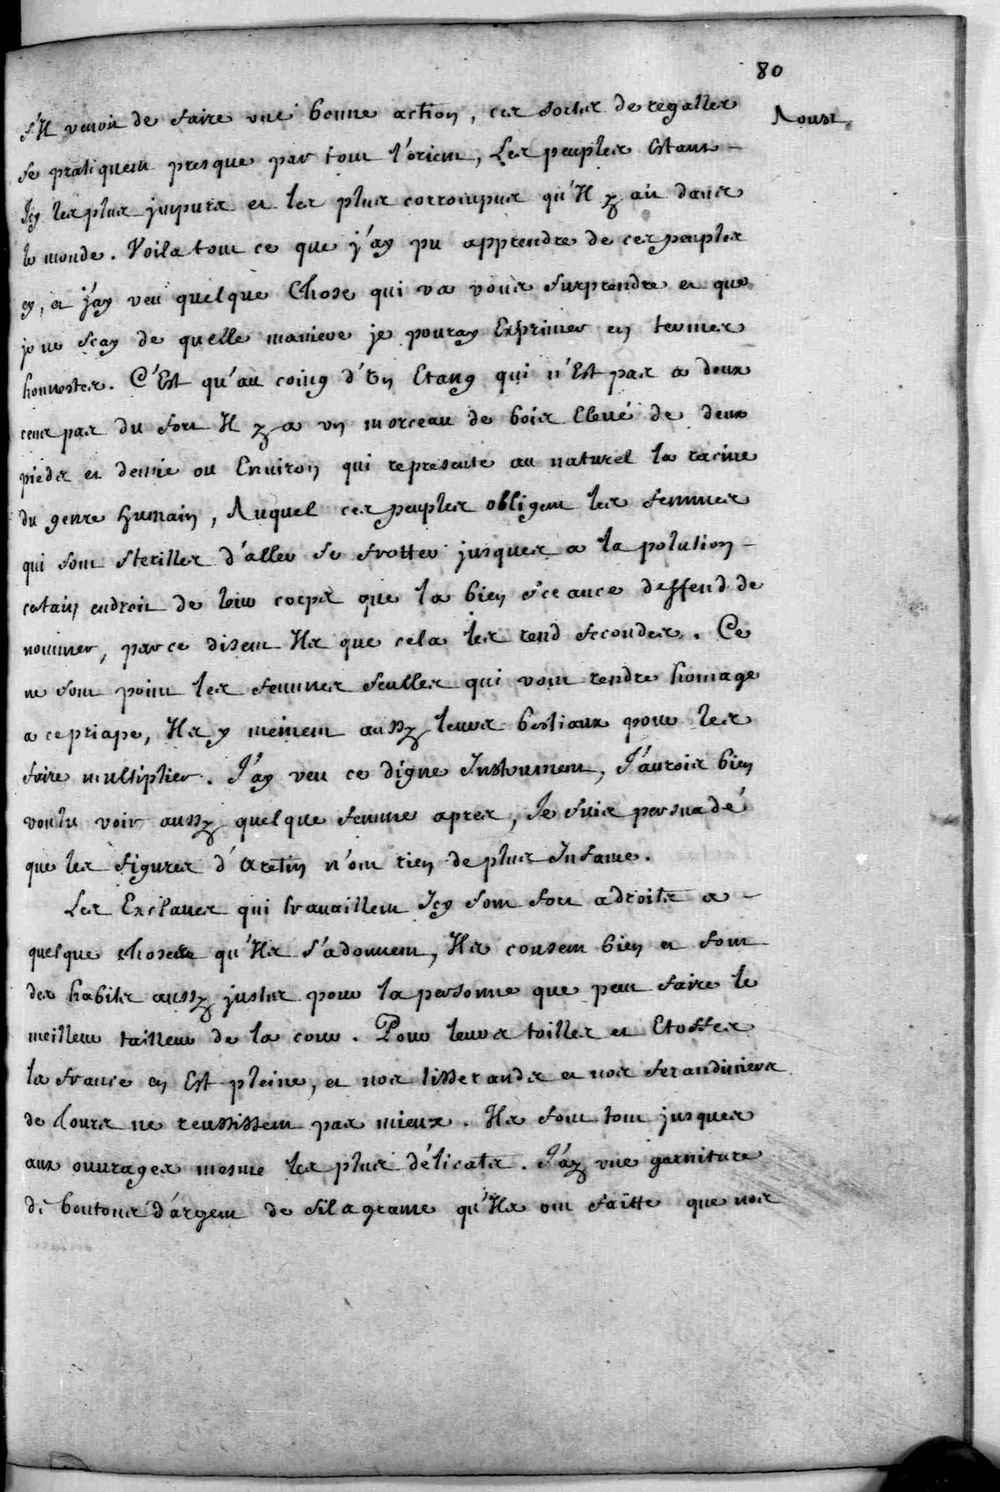 80
Aoust.
s'Il venoit de faire une bonne action, ces sortes de regalles
se pratiquent presque par tout l'orient, Les peuples Estans
Icy les plus impurs et les plus corrompus qu'Il y ait dans
le monde. Voila tout ce que j'ay pu apprendre de ces peuples
cy, et j'ay veu quelque Chose qui va vous surprendre et que
je ne scay de quelle maniere je pouray Exprimer en termes
honnestes. C'Est qu'au coing d'Un Etang qui n'Est pas a deux
cent pas du fort Il y a un morceau de bois Eleué de deux
pieds et demie ou Enuiron qui represente au naturel la racine
du genre humain, Auquel ces peuples obligent les femmes
qui sont sterilles d'aller se frotter jusques a la polution
certain endroit de leur corps que la bien sceance deffend de
nommer, parce disent Ils que cela les rend fecondes. Ce
ne sont point les femmes seulles qui vont rendre homage
a ce priape, Ils y meinent aussy leurs bestiaux pour les
faire multiplier. J'ay veu ce digne Instrument, J'aurois bien
voulu voir aussy quelque femme apres, Je suis persuadé
que les figures d'Aretin n'ont rien de plus Infame.
Les Esclaves qui travaillent Icy sont fort adroits a
quelque chose qu'Ils s'adonnent, Ils cousent bien et font
des habits aussy justes pour la personne que peut faire le
meilleur tailleur de la cour. Pour leurs toilles et Etoffes
la france en Est pleine, et nos tisserands et nos ferandiniers
de tours ne reussissent pas mieux. Ils font tout jusques
aux ouvrages mesme les plus délicats. J'ay une garniture
de boutons d'argent de filagrame qu'Ils ont faitte que nos